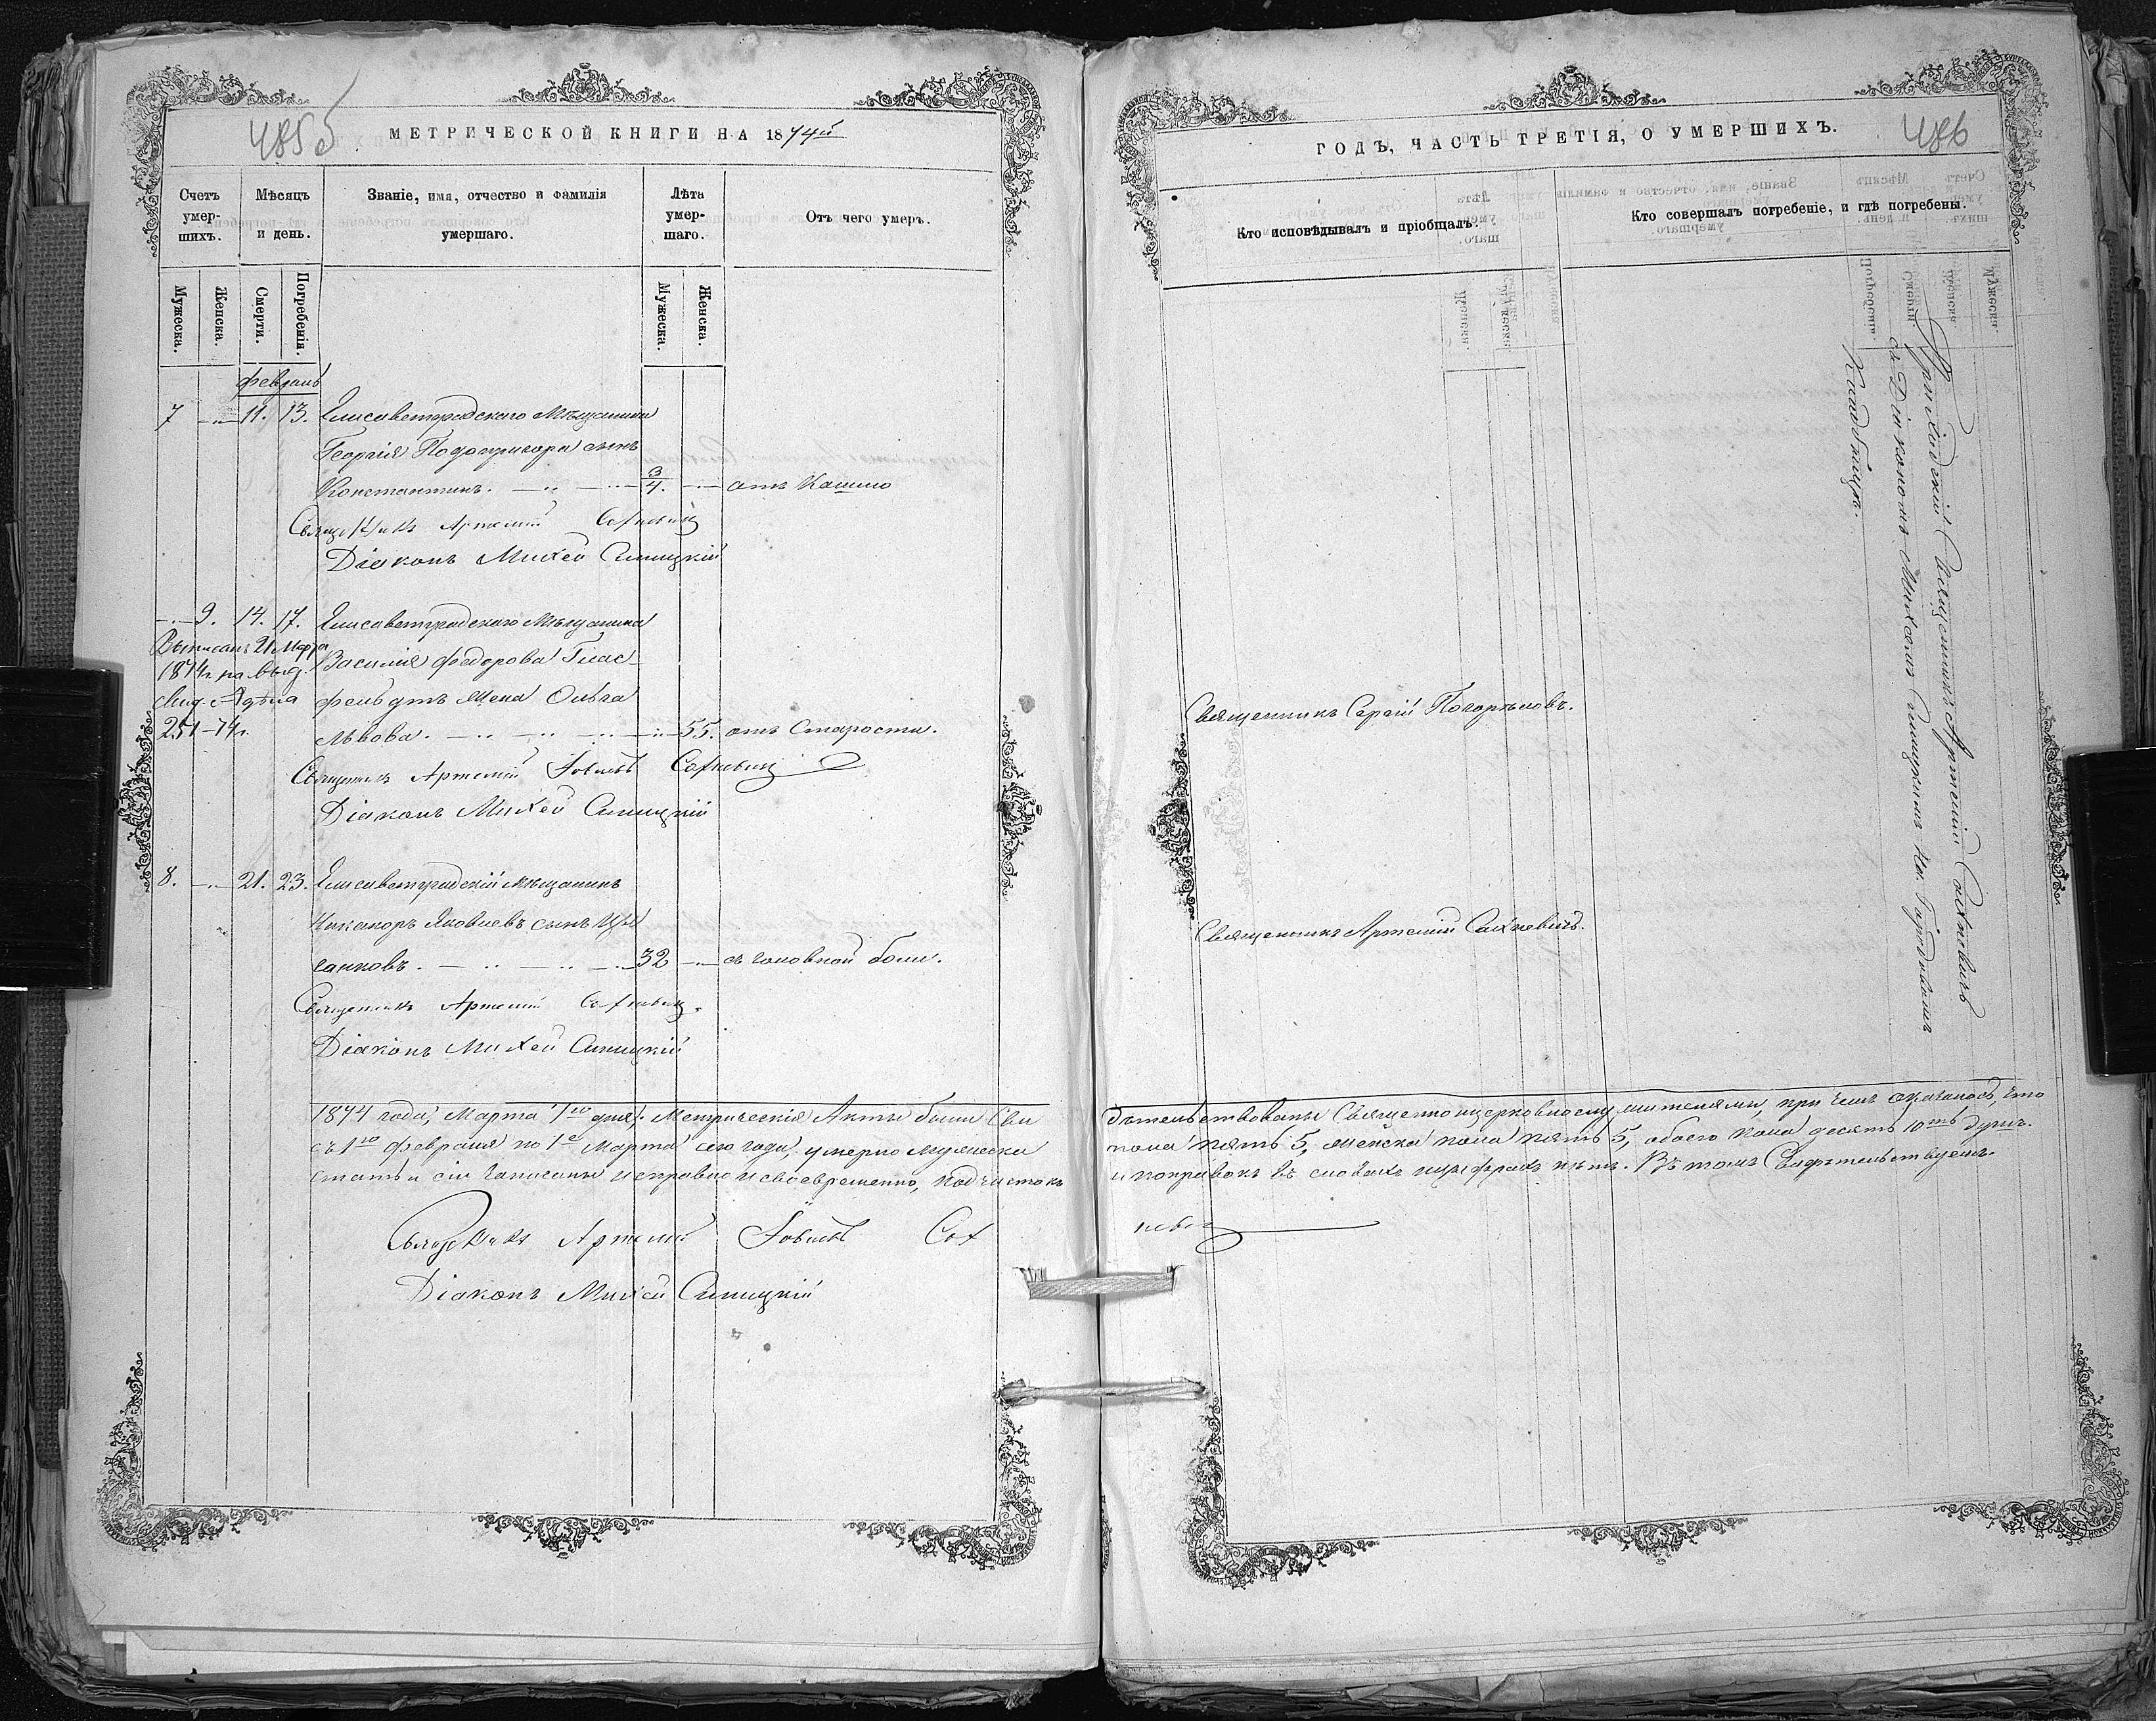 485 б
МЕТРИЧЕСКОЙ КНИГИ НА 1874й
Счетъ умер-шихъ.
Мѣсяцъ и день.
Званіе, имя, отчество и фамилія умершаго.
Лѣта умер-шаго.
Отъ чего умеръ.
Мужеска.
Женска.
Смерти.
Погребенія.
Мужеска.
Женска.
февраль
7 11. 13. Елисаветградскаго Мѣщанина
Георгія Подопригора сынъ
Константинъ. 3/4. отъ Кашлю
Священникъ Артемій Сахневичъ
Діаконъ Михей Синицкій
9. 14. 17. Елисаветградскаго Мѣщанина
Выписанъ 21 Марта
1874 г. на выд.
Василія Федорова Глас-
фельдтъ жена Ольга
251-74 г.
Львова. 55. отъ Старости.
Священникъ Артемій Іовлевъ Сахневичъ
Діаконъ Михей Синицкій
8. 21. 23. Елисаветградскій мѣщанинъ
Никаноръ Яковлевъ сынъ Цы
ганковъ. 32 съ головной боли.
Священникъ Артемій Сахневичъ.
Діаконъ Михей Синицкій
1874 года, Марта 1го дня; Метрическія Акты были Сви
съ 1го Февраля по 1е Марта сего года, умерло мужеска
статьи сіи записаны исправно и своевременно, подчистокъ
Священникъ Артемій Іовлевъ Сах
Діаконъ Михей Синицкій
ГОДЪ, ЧАСТЬ ТРЕТІЯ, О УМЕРШИХЪ.
486
Кто исповѣдывалъ и пріобщалъ.
Кто совершалъ погребеніе, и гдѣ погребены.
Приходскій Священникъ Артемій Сахневичъ
съ Діакономъ Михеемъ Синицкимъ на Городскомъ
Кладбищѣ.
Священникъ Сергій Погорѣловъ.
Священникъ Артемій Сахневичъ.
дѣтельствованы Священноцерковнослужителями, при чемъ оказалось, что
пола пять 5, женска пола пять 5, обоего пола десять 10ть душъ.
и поправокъ въ словахъ и цифрахъ нѣтъ. Въ томъ Свидѣтельствуемъ.
невичъ